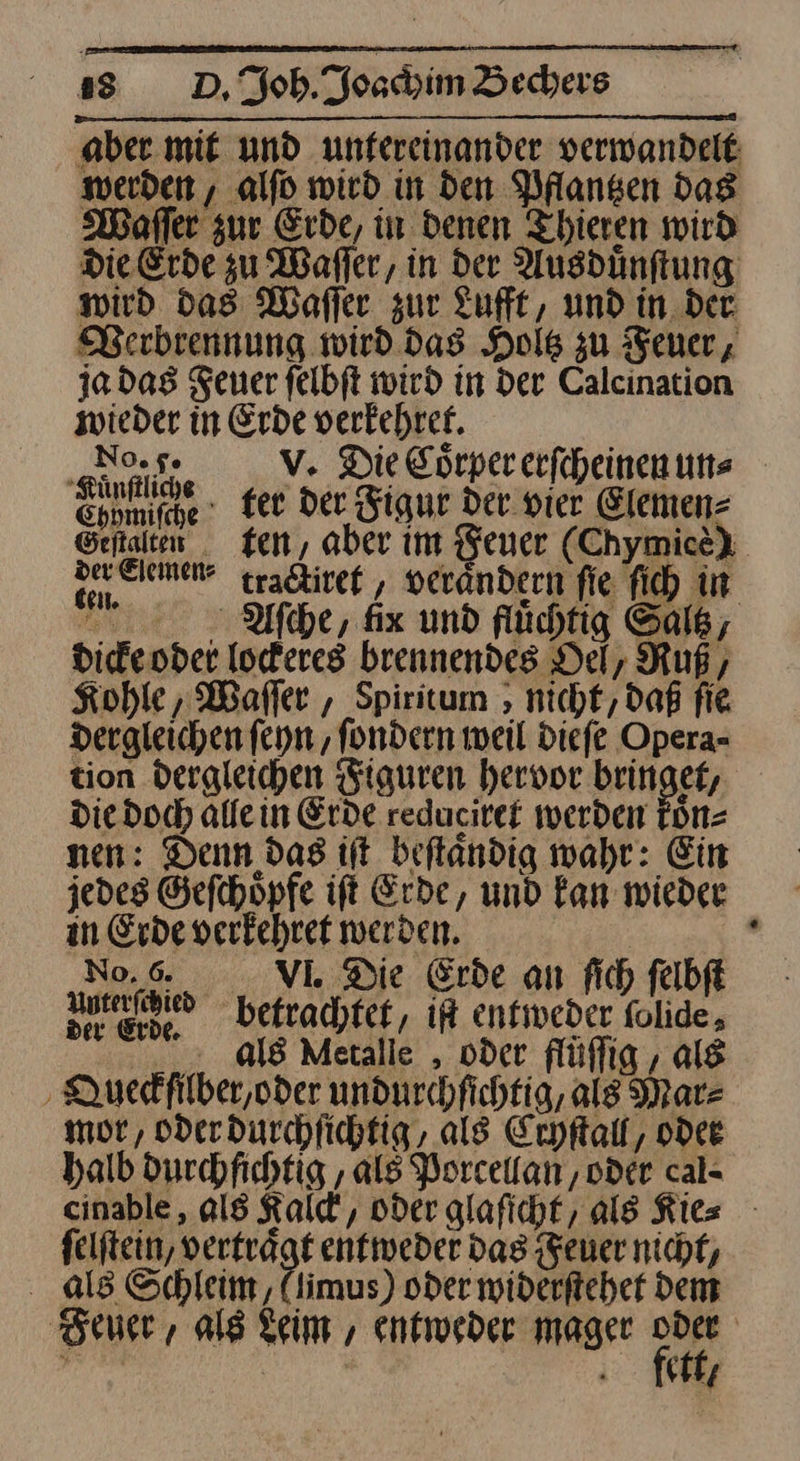 18 D. Joh. Joachim Bechers
aber mit und untereinander verwandelt
werden / alſo wird in den Pflantzen das
Waſſer zur Erde / in denen Thieren wird
die Erde zu Waſſer / in der Ausduͤnſtung
wird das Waſſer zur Lufft / und in der
Verbrennung wird das Holtz zu Feuer /
ja das Feuer ſelbſt wird in der Calcination
wieder in Erde verkehret.
No. 5.
Kuͤnſtliche
Chymiſche
Geſtalten
der Elemen⸗
ten.
V. Die Coͤrper erſcheinen un⸗
ter der Figur der vier Elemen⸗
ten / aber im Feuer (Chymicè)
tractiret / veraͤndern ſie ſich in
Aſche / fix und fluͤchtig Saltz /
dicke oder lockeres brennendes Oel / Ruß /
Kohle / Waſſer / Spiritum , nicht / daß ſie
dergleichen ſeyn / ſondern weil dieſe Opera-
tion dergleichen Figuren hervor bringet /
die doch alle in Erde reduciret werden koͤn⸗
nen: Denn das iſt beſtaͤndig wahr: Ein
jedes Geſchoͤpfe iſt Erde / und kan wieder
in Erde verkehret werden.
No. 6.
Unterſchied
der Erde.
VI. Die Erde an ſich ſelbſt
betrachtet / iſt entweder ſolide,
als Metalle , oder fluͤſſig / als
Queckſilber / oder undurchſichtig / als Mar⸗
mor / oder durchſichtig / als Cryſtall / oder
halb durchſichtig / als Porcellan / oder cal-
cinable, als Kalck / oder glaſicht / als Kie⸗
ſelſtein / vertraͤgt entweder das Feuer nicht /
als Schleim / (limus) oder widerſtehet dem
Feuer / als Leim / entweder mager oder
fett /